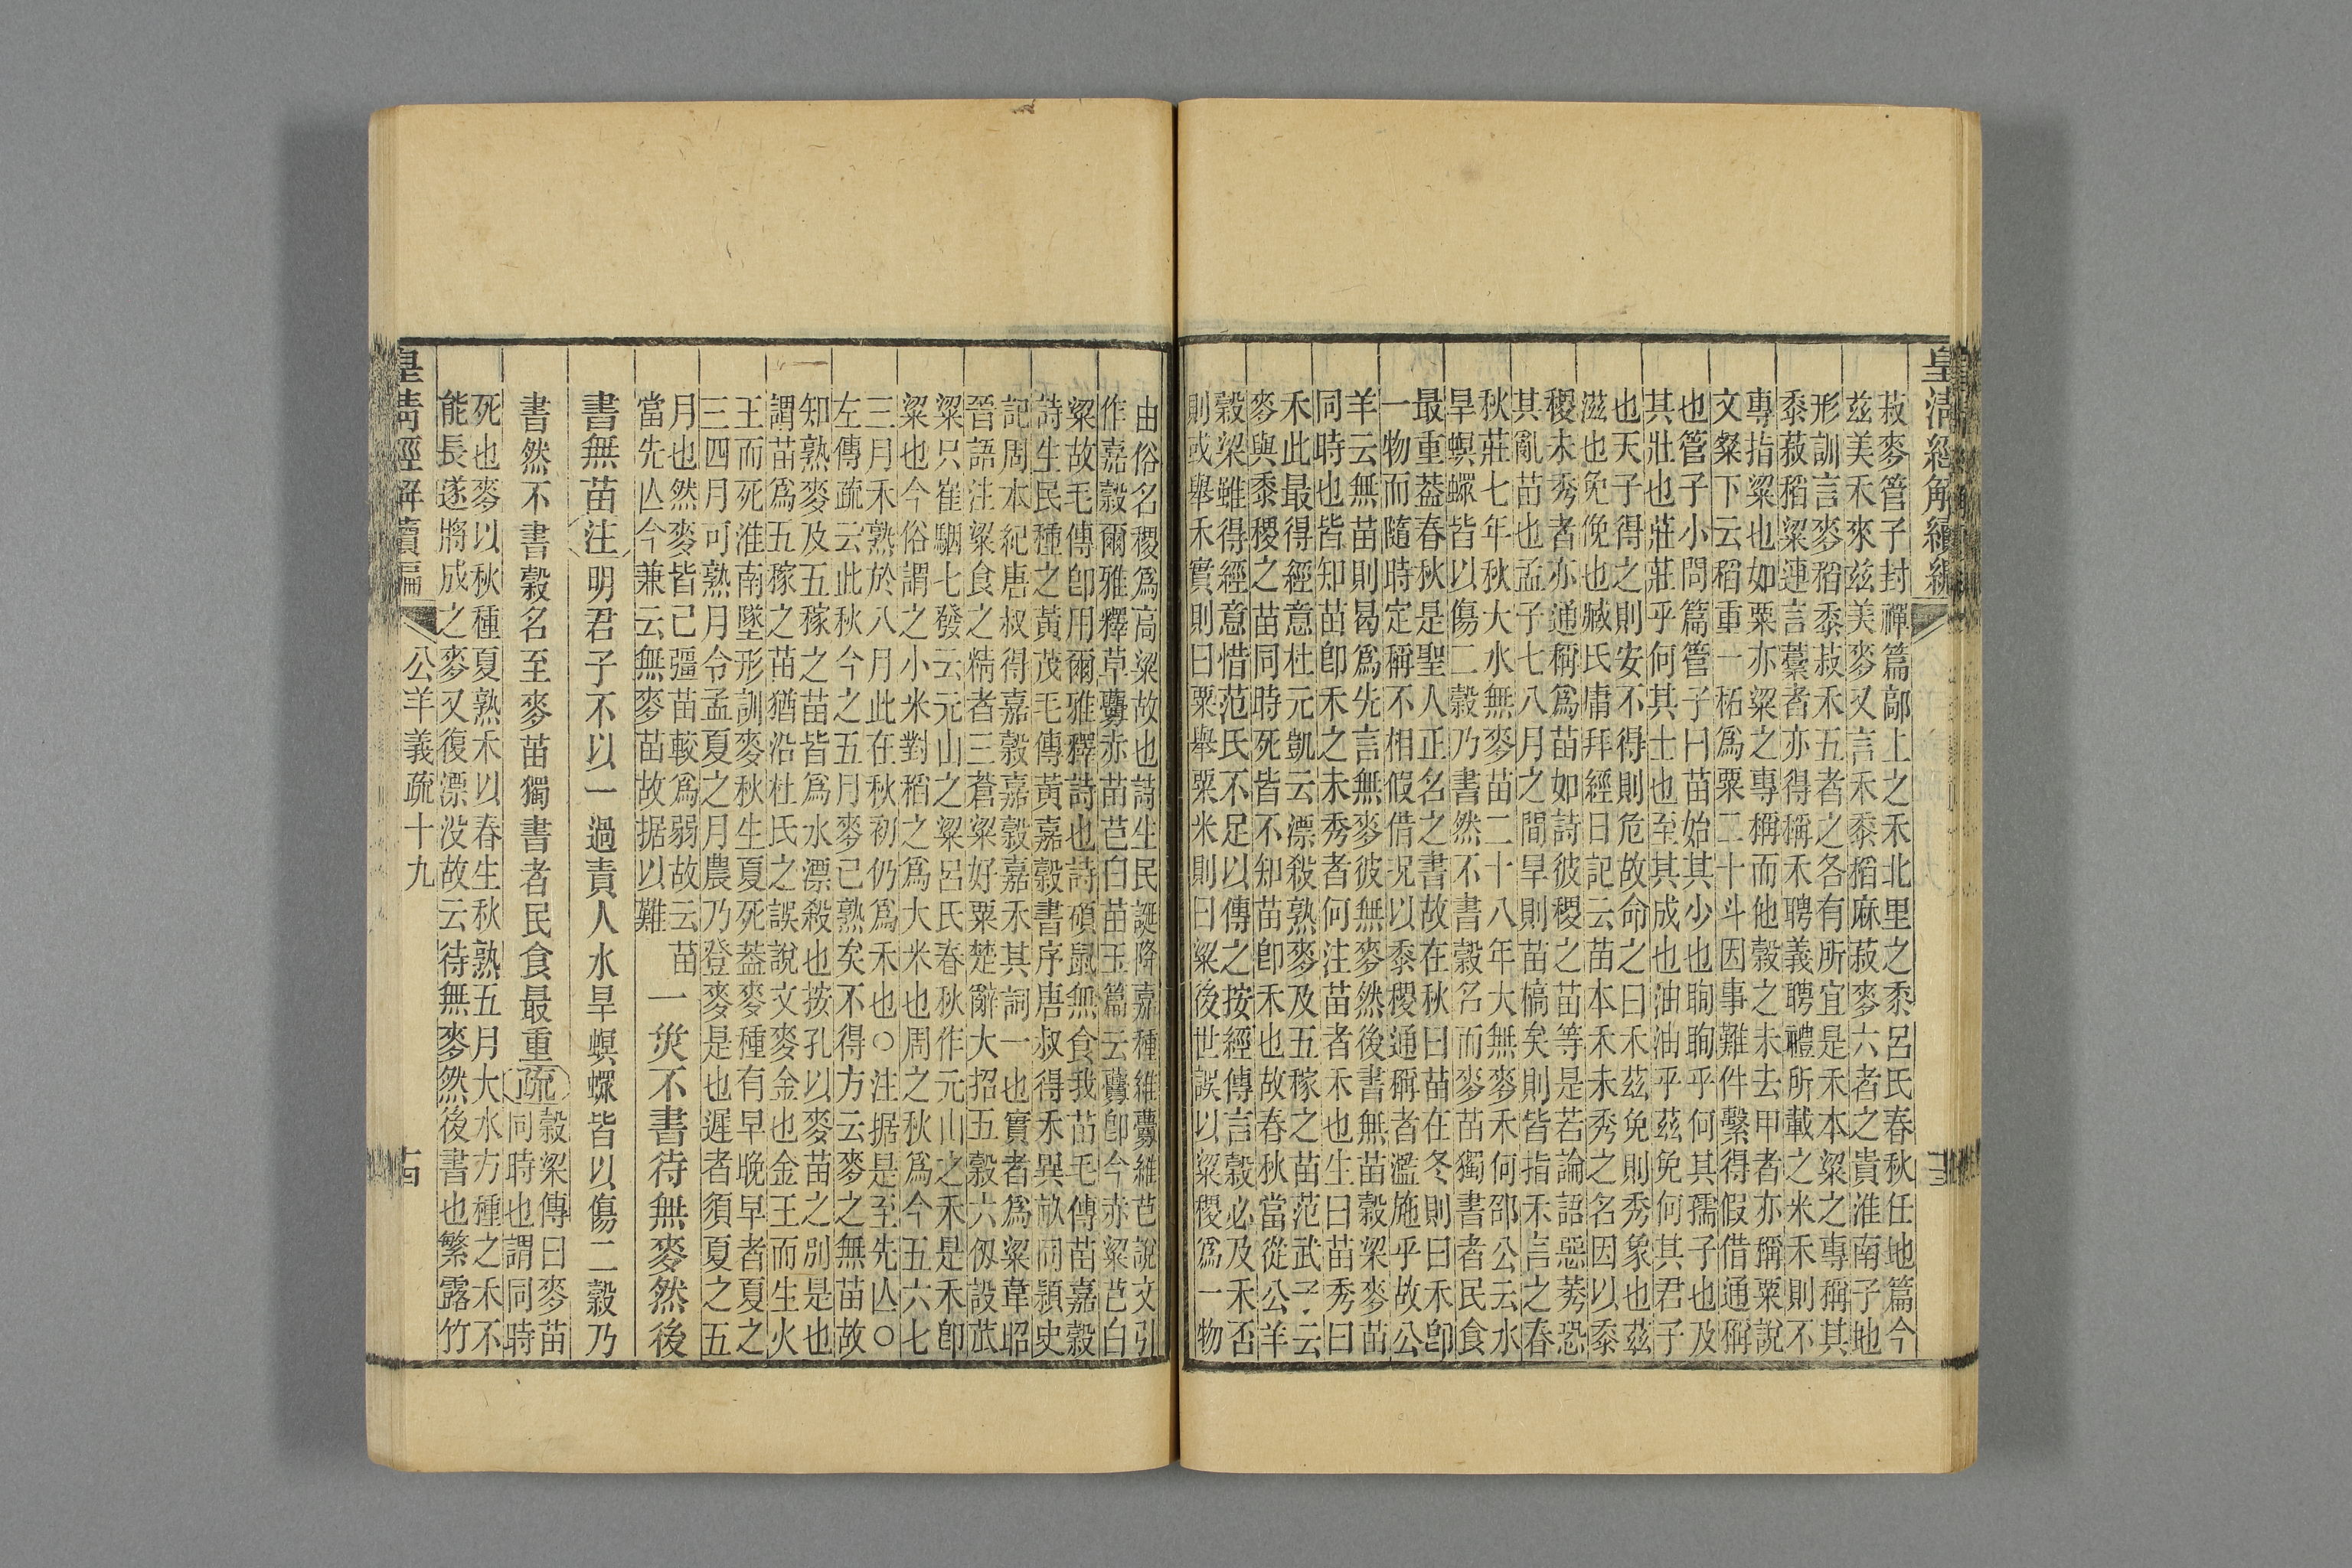 皇淸經解續編
菽麥管子封禪篇鄗上之禾北里之黍呂氏春秋任地篇今
茲美禾來茲美麥又言禾黍稻麻菽麥六者之貴淮南子地
形訓言麥稻黍菽禾五者之各有所宜是禾本粱之專稱其
黍菽稻粱連言藁者亦得稱禾聘義聘禮所載之米禾則不
專指粱也如粟亦粱之專稱而他穀之未去甲者亦稱粟說
文粲下云稻重一䄷爲粟二十斗因事難件繫得假借通稱
也管子小問篇管子曰苗始其少也眴眴乎何其孺子也及
其壯也莊莊乎何其士也至其成也油油乎茲免何其君子
也天子得之則安不得則危故命之曰禾茲免則秀象也茲
滋也免俛也臧氏庸拜經日記云苗本禾未秀之名因以黍
稷未秀者亦通稱爲苗如詩彼稷之苗等是若論語惡莠恐
其亂苗也孟子七八月之間旱則苗槁矣則皆指禾言之春
秋莊七年秋大水無麥苗二十八年大無麥禾何邵公云水
旱螟螺皆以傷二穀乃書然不書穀名而麥苗獨書者民食
最重葢春秋是聖人正名之書故在秋曰苗在冬則曰禾卽
一物而隨時定稱不相假借況以黍稷通稱者濫施乎故公
羊云無苗則曷爲先言無麥彼無麥然後書無苗穀梁麥苗
同時也皆知苗卽禾之未秀者何注苗者禾也生曰苗秀曰
禾此最得經意杜元凱云漂殺熟麥及五稼之苗范武子云
麥與黍稷之苗同時死皆不知苗卽禾也故春秋當從公羊
穀梁雖得經意惜范氏不足以傳之按經傳言穀必及禾否
則或舉禾實則曰粟舉粟米則曰粱後世誤以粱稷爲一物
由俗名稷爲高粱故也詩生民誕降嘉種維虋維芑說文引
作嘉穀爾雅釋草虋赤苗芑白苗玉篇云虋卽今赤粱芑白
粱故毛傳卽用爾雅釋詩也詩碩鼠無食我苗毛傳苗嘉穀
詩生民種之黃茂毛傳黃嘉穀書序唐叔得禾異畝同穎史
記周本紀唐叔得嘉穀嘉穀嘉禾其詞一也實者爲粱韋昭
晉語注粱食之精者三蒼粱好粟楚辭大招五穀六仞設苽
粱只崔駰七發云元山之粱呂氏春秋作元山之禾是禾卽
粱也今俗謂之小米對稻之爲大米也周之秋爲今五六七
三月禾熟於八月此在秋初仍爲禾也○注据是至先亾○
左傳疏云此秋今之五月麥己熟矣不得方云麥之無苗故
知熟麥及五稼之苗皆爲水漂殺也按孔以麥苗之別是也
謂苗爲五稼之苗猶沿杜氏之誤說文麥金也金王而生火
王而死淮南墜形訓麥秋生夏死葢麥種有早晚早者夏之
三四月可熟月令孟夏之月農乃登麥是也遲者須夏之五
月也然麥皆己彊苗較爲弱故云苗
當先亾今兼云無麥苗故据以難
一災不書待無麥然後
書無苗注明君子不以一過責人水旱螟螺皆以傷二穀乃
書然不書穀名至麥苗獨書者民食最重疏穀梁傳曰麥苗
同時也謂同時
死也麥以秋種夏熟禾以春生秋熟五月大水方種之禾不
能長遂將成之麥又復漂沒故云待無麥然後書也繁露竹
皇淸經解續編
公羊義疏十九
古